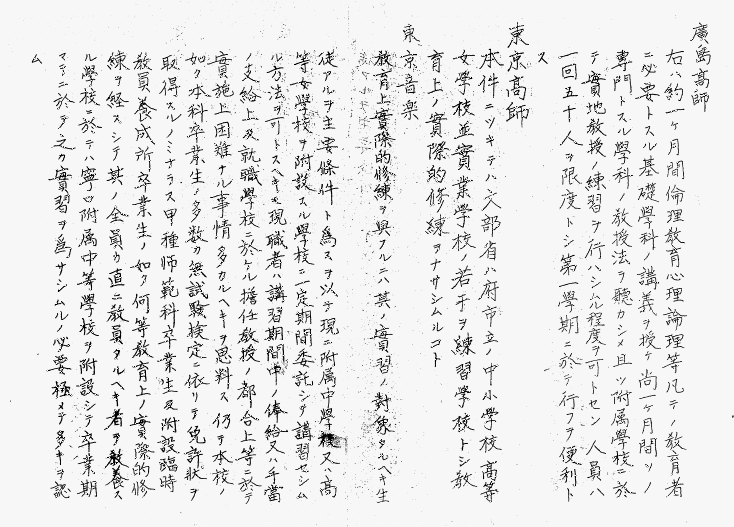 廣島高師
右ハ約一ケ月間倫理教育心理論理等凡テノ教育者
ニ必要トスル基礎學科ノ講義ヲ授ケ尚一ケ月間ソノ
專門トスル學科ノ教授法ヲ聽カシメ且ツ附属學校ニ於
テ實地教授ノ練習ヲ行ハシムル程度ヲ可トセン 人員ハ
一回五十人ヲ限度トシ第一學期ニ於テ行フヲ便利ト
ス
東京高師
本件ニツキテハ文部省ハ府市立ノ中小學校高等
女學校並實業學校ノ若干ヲ練習學校トシ教
育上ノ實際的修練ヲナサシムルコト
東京音楽
教育上實際的修練ヲ與フルニハ其ノ實習ノ對象タルヘキ生
徒アルヲ主要條件ト為スヲ以テ現ニ附属中學校又ハ高
等女學校ヲ附設スル學校ニ一定期間委託シテ講習セシム
ル方法ヲ可トスヘキモ現職者ハ講習期間中ノ俸給又ハ手當
ノ支給上及就職學校ニ於ケル擔任教授ノ都合上等ニ於テ
實施上困難ナル事情多カルヘキヲ思料ス 仍テ本校ノ
如ク本科卒業生ノ多数カ無試驗檢定ニ依リテ免許状ヲ
取得スルノミナラス甲種師範科卒業生及附設臨時
教員養成所卒業生ノ如ク何等教育上ノ實際的修
練ヲ経スシテ其ノ全員カ直ニ教員タルヘキ者ヲ教養ス
ル學校ニ於テハ寧ロ附属中等學校ヲ附設シテ卒業期
マテニ於テ之カ實習ヲ為サシムルノ必要極メテ多キヲ認
ム